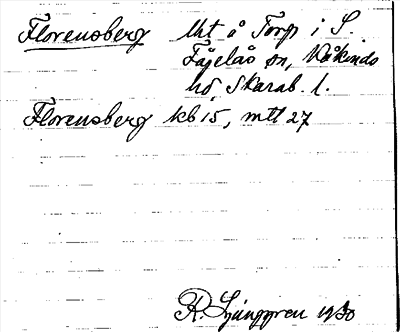 Florensberg Uht å Torp i S.
Fågelås sn, Kåkinds
hd, Skarab. l.
Florensberg kb 15, mtl 27
R. Ljunggren 1930